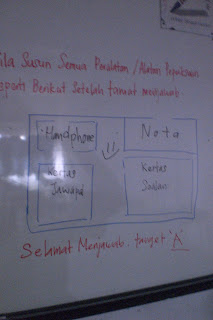 ila Susun Semua Peralatan / Alatan Peperiksaan
seperti Berikut Setelah tamat menjawab
Handphone
Nota
Kertas
Jawapan
Kertas
Soalan
Selamat Menjawab. target 'A'